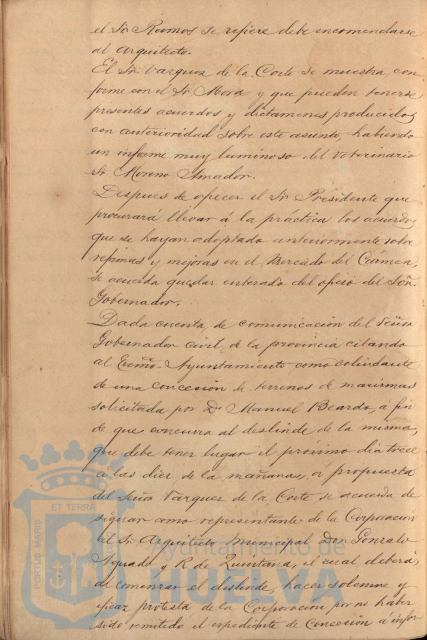 el Sr. Ramos se refiere debe encomendarse
al Arquitecto.
El Sr. Vazquez de la Corte se muestra con-
forme con el Sr. Mora y que pueden tenerse
presentes acuerdos y dictamenes producidos
con anterioridad sobre este asunto, habiendo
un informe muy luminoso del Veterinario
Sr. Moreno Amador.
Despues de ofrecer el Sr. Presidente que
procurará llevar á la práctica los acuerdos
que se hayan adoptado anteriormente sobre
reformas y mejoras en el Mercado del Carmen
se acuerda quedar enterado del oficio del Señor
Gobernador.
Dada cuenta de comunicacion del Señor
Gobernador civil de la provincia citando
al Excmo. Ayuntamiento como colindante
de una concesion de terrenos de marismas
solicitada por Dn. Manuel Beardo, á fin
de que concurra al deslinde de la misma,
que debe tener lugar el próximo dia trece
a las diez de la mañana, á propuesta
del Señor Vazquez de la Corte se acuerda de-
signar como representante de la Corporacion
al Sr. Arquitecto Municipal Don Gonzalo
Aguado y R. de Quintana, el cual deberá,
al comenzar el deslinde, hacer solemne y
eficaz protesta de la Corporacion por no haber
sido remitido el expediente de Concesion á infor-
PORTUS MARIS
ET TERRA
Ayuntamiento de
HUELVA